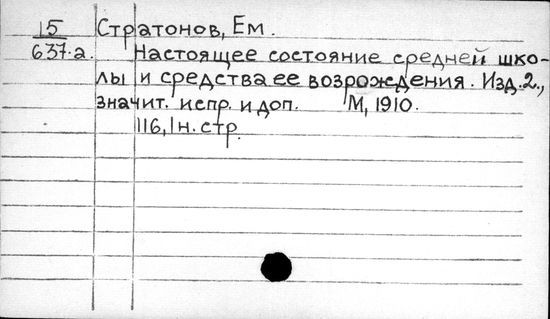 15 Стратонов, Ем.
637.а. Настоящее состояние средней шко-
лы и средства ее возрождения. Изд. 2.,
значит. испр. и доп. М, 1910.
116, 1 н. стр.